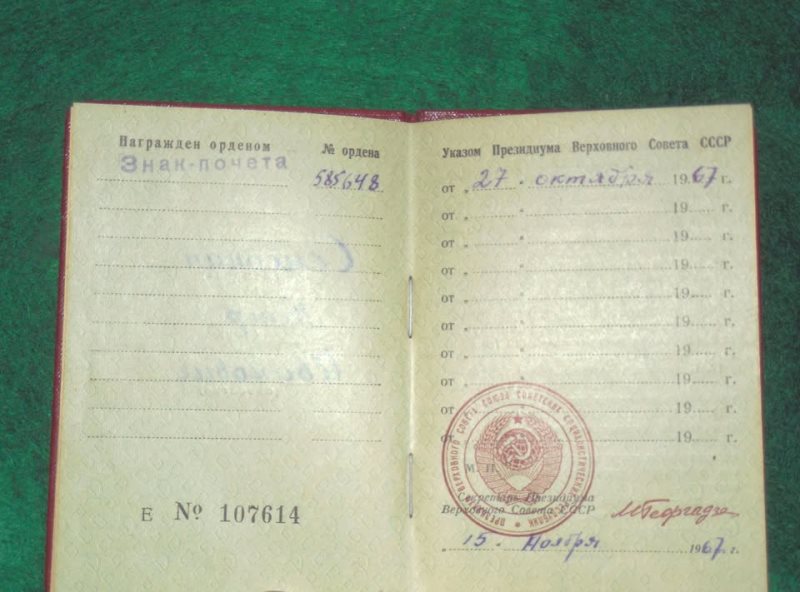 Награжден орденом
№ ордена
Знак-почета
585648
Е № 107614
Указом Президиума Верховного Совета СССР
от „ 27 " октября 1967 г.
от „ " 19 г.
от „ " 19 г.
от „ " 19 г.
от „ " 19 г.
от „ " 19 г.
от „ " 19 г.
от „ " 19 г.
от „ " 19 г.
от „ " 19 г.
М. П.
Секретарь Президиума
Верховного Совета СССР
МГеоргадзе
„ 15 " Ноября 1967 г.